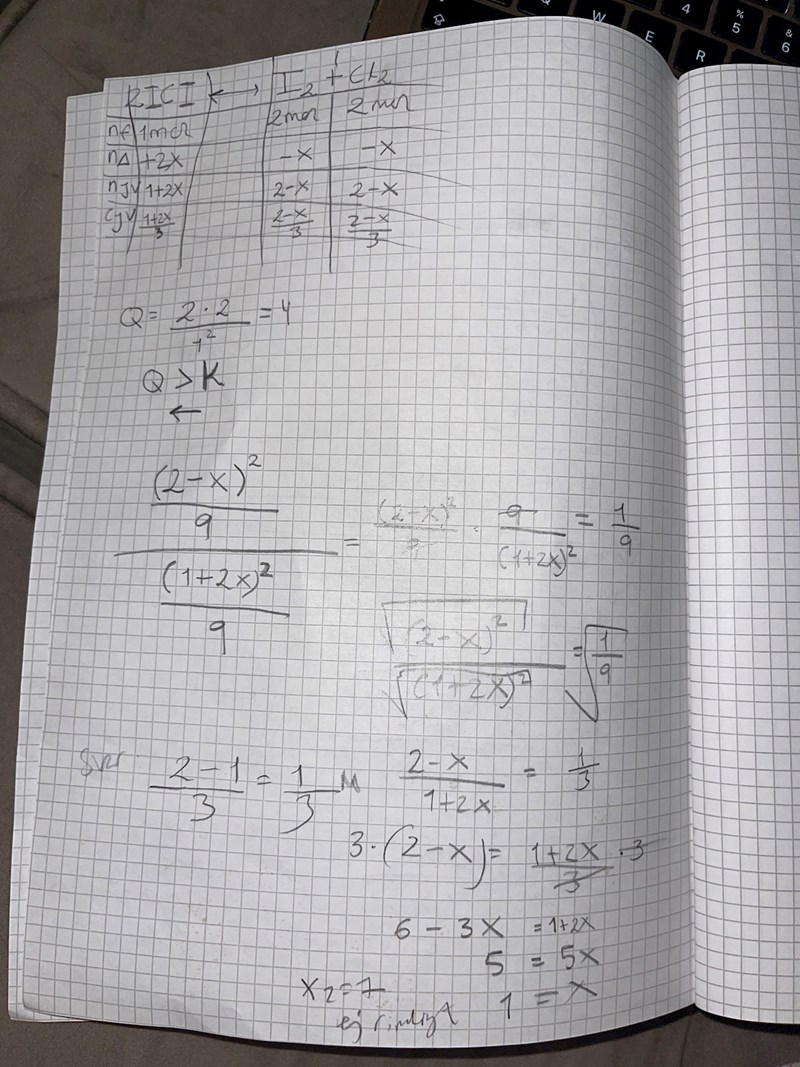 W E R 4 % 5 & 6
2ICI ⟷ I₂ + Cl₂
nf 1mol 2mol 2mol
nΔ +2x -x -x
njv 1+2x 2-x 2-x
cjv (1+2x)/3 (2-x)/3 (2-x)/3
Q = (2·2)/1² = 4
Q > K
←
((2-x)²/9)/((1+2x)²/9) = (2-x)²/9 · 9/(1+2x)² = 1/9
√(2-x)²/√(1+2x)² = √(1/9)
Svar (2-1)/3 = 1/3 M
(2-x)/(1+2x) = 1/3
3·(2-x) = (1+2x)/3 ·3
6 - 3x = 1+2x
5 = 5x
1 = x
x₂=7
ej rimligt